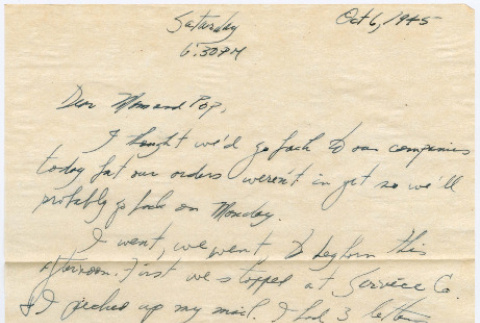 Saturday
Oct 6, 1945
6:30 PM
Dear Mom and Pop,
I thought we'd go back to our companies
today but our orders weren't in yet so we'll
probably go back on Monday.
I went, we went, to this
afternoon. First we stopped at Service Co.
& I picked up my mail. I had 3 letters